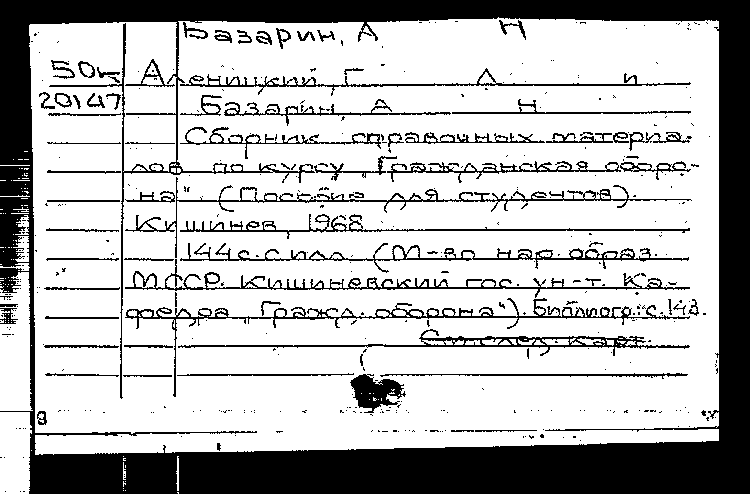 Базарин, А Н
50к Аленицкий, Г Л и
20147 Базарин, А Н
Сборник справочных материа-
лов по курсу „Гражданская оборо-
на". (Пособие для студентов).
Кишинев, 1968
144 с. с илл. (М-во нар. образ.
МССР. Кишиневский гос. ун-т. Ка-
федра „Гражд. оборона"). Библиогр.: с. 143.
См. след. карт.